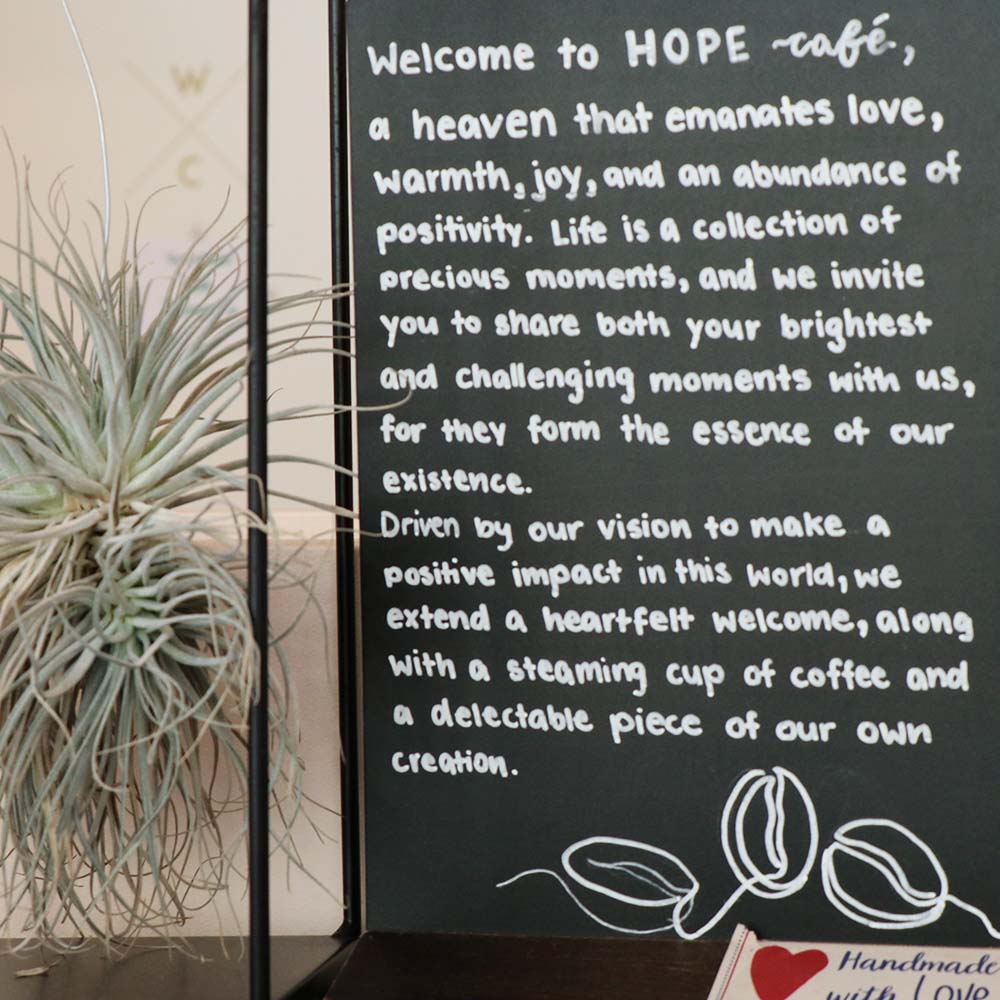 W
C
Welcome to HOPE café,
a heaven that emanates love,
warmth, joy, and an abundance of
positivity. Life is a collection of
precious moments, and we invite
you to share both your brightest
and challenging moments with us,
for they form the essence of our
existence.
Driven by our vision to make a
positive impact in this world, we
extend a heartfelt welcome, along
with a steaming cup of coffee and
a delectable piece of our own
creation.
Handmade
with Love